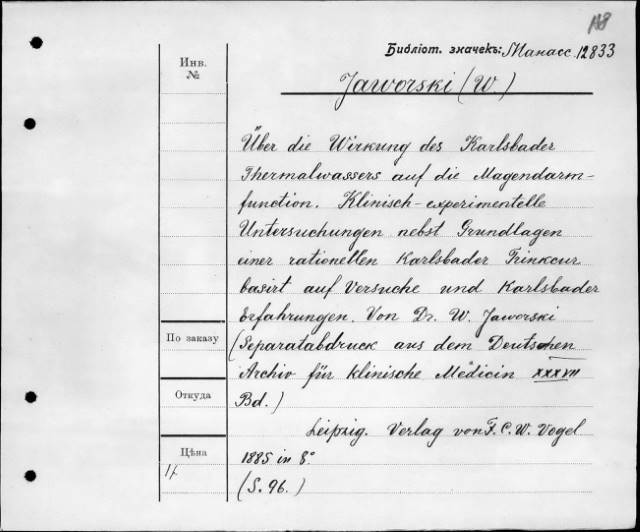 118
Библіот. значекъ: Манасс. 12833
Инв.
№
Jaworski (W.)
Über die Wirkung des Karlsbader
Thermalwassers auf die Magendarm-
function. Klinisch-experimentelle
Untersuchungen nebst Grundlagen
einer rationellen Karlsbader Trinkcur
basirt auf Versuche und Karlsbader
Erfahrungen. Von Dr. W. Jaworski
По заказу
(Separatabdruck aus dem Deutschen
Archiv für klinische Medicin XXXVII
Откуда
Bd.)
Leipzig. Verlag von F. C. W. Vogel
Цѣна
1885 in 8°
(S. 96.)